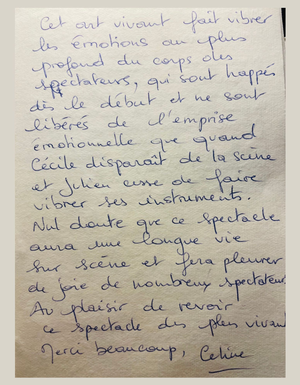 Cet art vivant fait vibrer
les émotions au plus
profond du corps des
spectateurs, qui sont happés
dès le début et ne sont
libérés de l'emprise
émotionnelle que quand
Cécile disparait de la scène
et Julien cesse de faire
vibrer ses instruments.
Nul doute que ce spectacle
aura une longue vie
sur scène et fera pleurer
de joie de nombreux spectateurs
Au plaisir de revoir
ce spectacle des plus vivant
Merci beaucoup, Celine